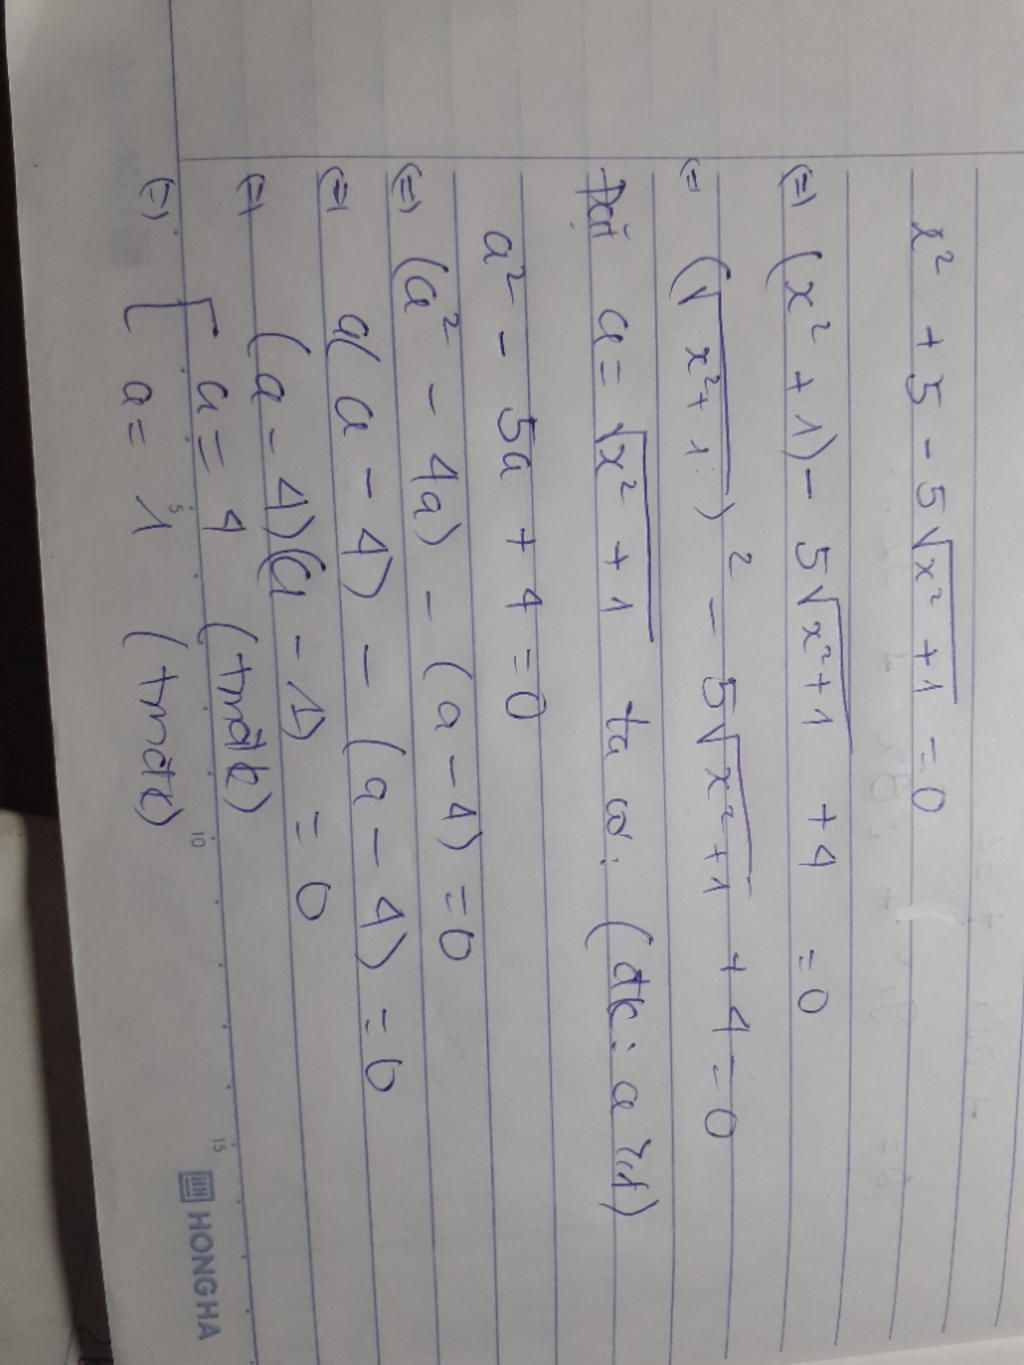 x² + 5 - 5√(x² + 1) = 0
(=) (x² + 1) - 5√(x²+1) + 4 = 0
(= (√(x²+1))² - 5√(x²+1) + 4 = 0
Đặt a = √(x² + 1) ta có. (đk: a ≥ 1)
a² - 5a + 4 = 0
(=) (a² - 4a) - (a - 4) = 0
(=) a(a - 4) - (a - 4) = 0
(=) (a - 4)(a - 1) = 0
(=) [ a = 4 (tmđk)
a = 1 (tmđk)
5 10 15
HONG HA